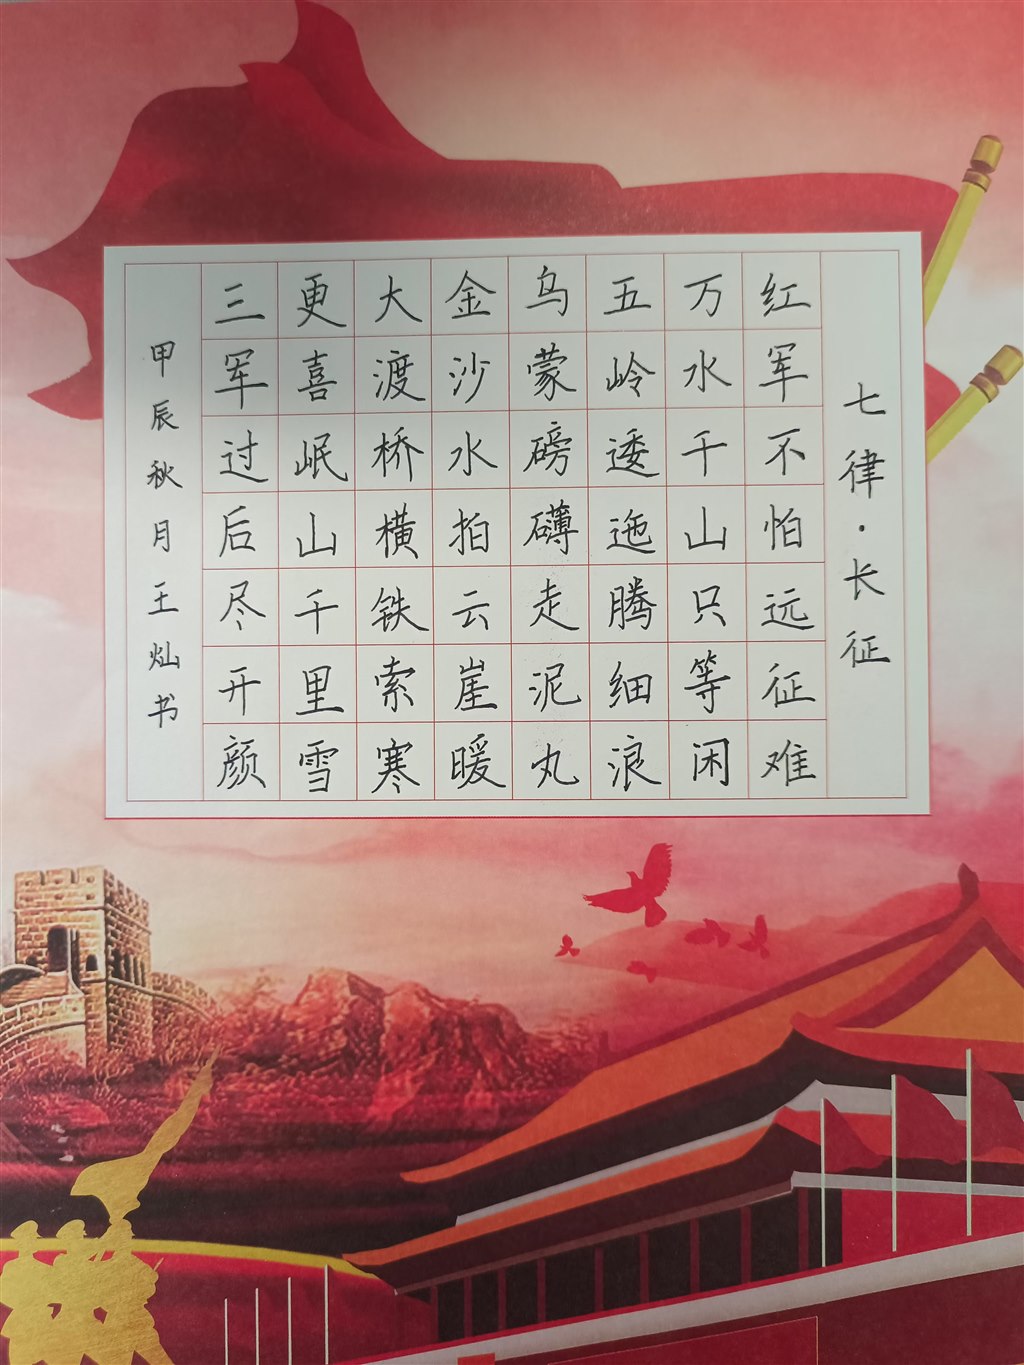 七律·长征
红军不怕远征难
万水千山只等闲
五岭逶迤腾细浪
乌蒙磅礴走泥丸
金沙水拍云崖暖
大渡桥横铁索寒
更喜岷山千里雪
三军过后尽开颜
甲辰秋月王灿书